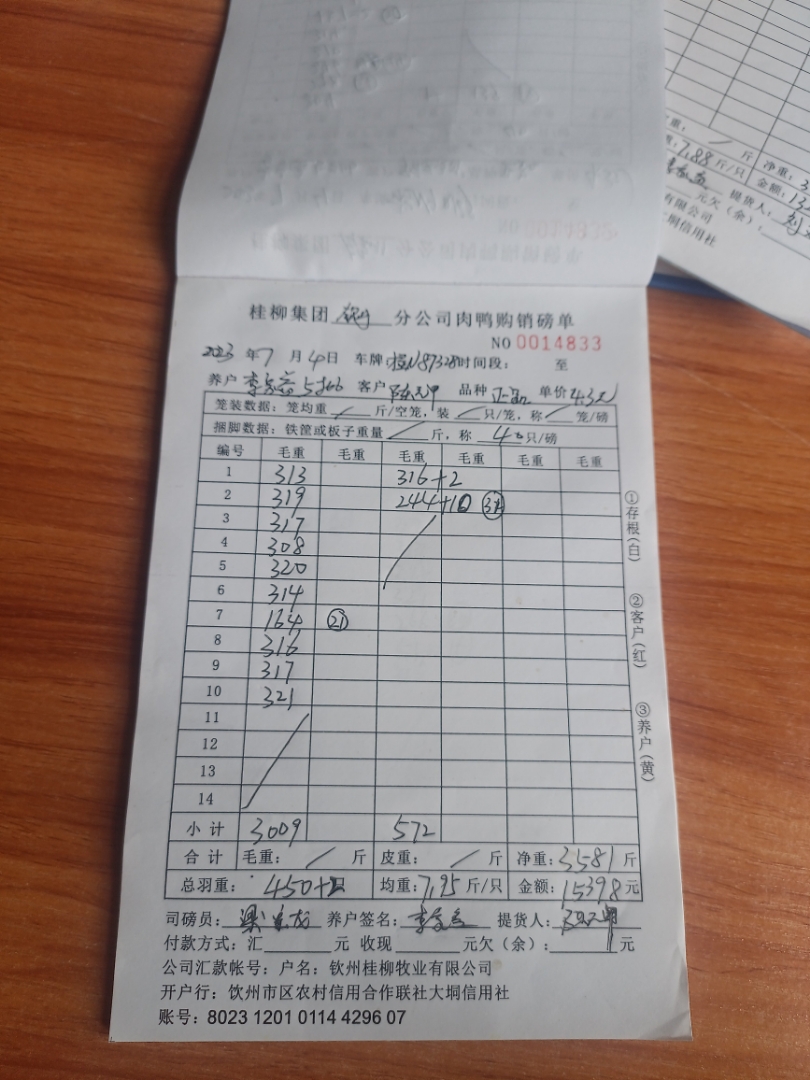 桂柳集团 分公司肉鸭购销磅单
NO 0014833
2023 年 7 月 4 日 车牌 桂N87328 时间段： 至
养户 李 客户 品种 正品 单价 4.3元
笼装数据：笼均重 / 斤/空笼，装 / 只/笼，称 / 笼/磅
捆脚数据：铁筐或板子重量 / 斤，称 只/磅
编号 毛重 毛重 毛重 毛重 毛重 毛重
1 313 316+2
2 319 244+10
3 317
4 308
5 320
6 314
7 164 21
8 316
9 317
10 321
11
12
13
14
小计 3009 572
合计 毛重： / 斤 皮重： / 斤 净重：3581 斤
总羽重： 450+ 均重：7.95 斤/只 金额：15398 元
司磅员： 养户签名： 提货人：
付款方式：汇 元 收现 元欠（余）： 元
公司汇款帐号：户名：钦州桂柳牧业有限公司
开户行：钦州市区农村信用合作联社大垌信用社
账号：8023 1201 0114 4296 07
①存根（白）
②客户（红）
③养户（黄）
重： / 斤 净重：
7.88 斤/只 金额：
提货人：
元欠（余）：
有限公司
大垌信用社